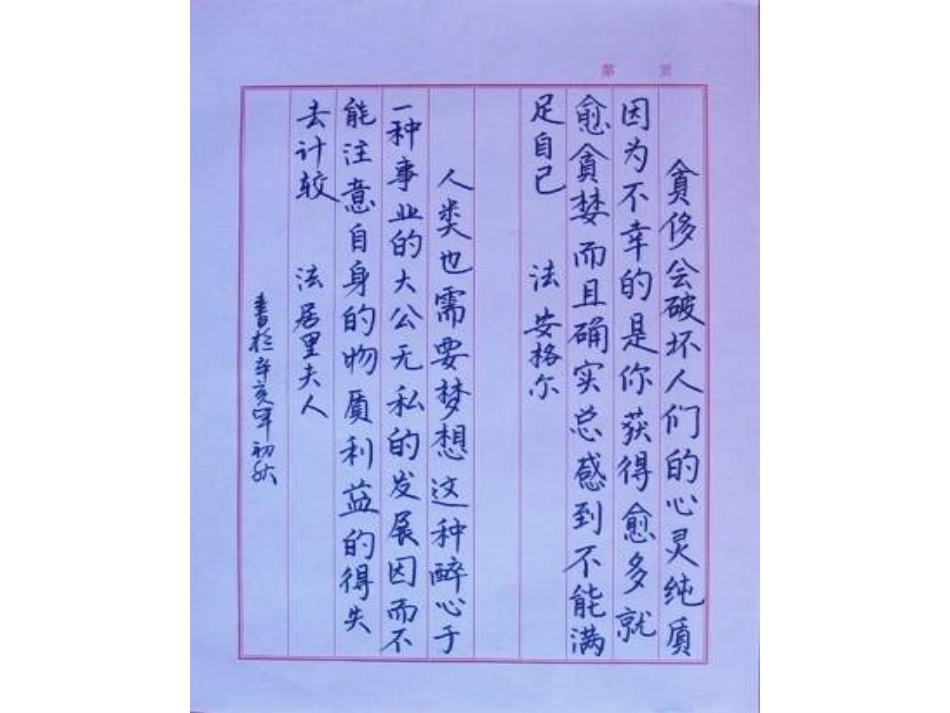 第 页
貪侈会破坏人们的心灵纯质
因为不幸的是你获得愈多就
愈貪婪而且确实总感到不能满
足自己 法 安格尔
人类也需要梦想这种醉心于
一种事业的大公无私的发展因而不
能注意自身的物质利益的得失
去计较 法 居里夫人
書於辛亥年初秋